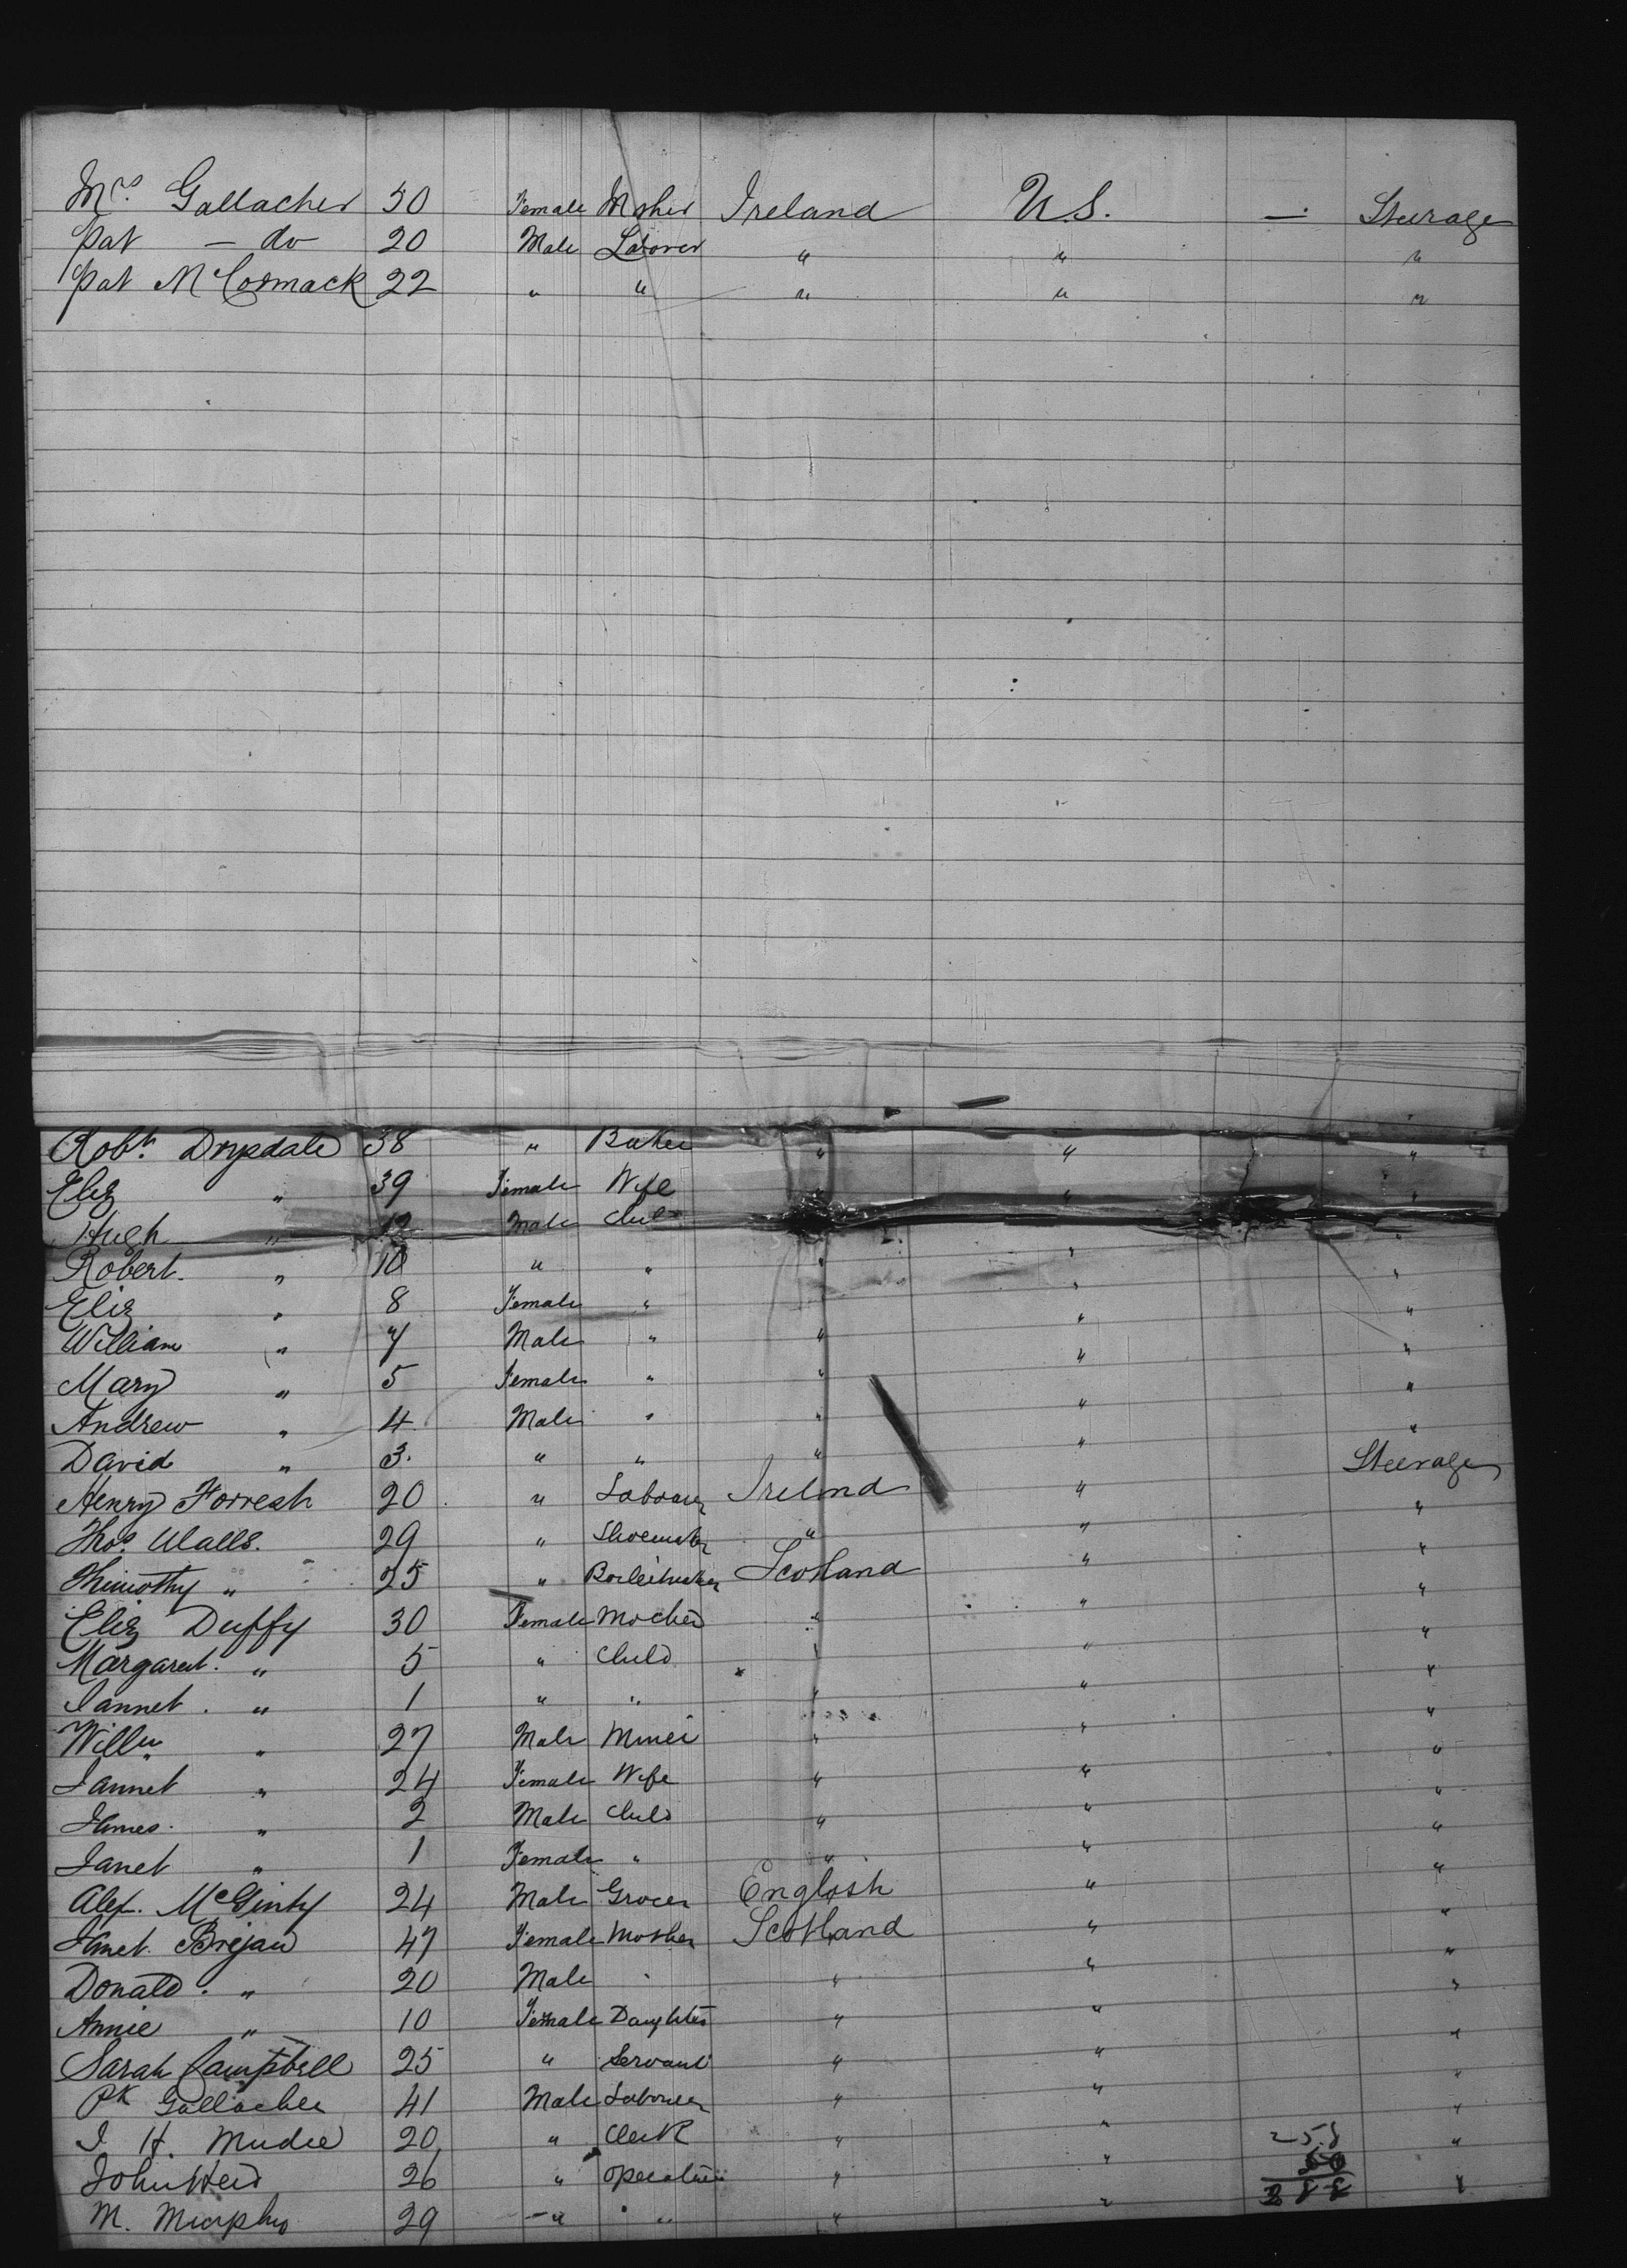 Mrs. Gallacher 50 Female Mother Ireland U.S. — Steerage
Pat — do 20 Male Laborer " " "
Pat McCormack 22 " " " " "
Robt. Drysdale 38 " Baker " " "
Eliz " 39 Female Wife " " "
Hugh " 12 Male Child "
Robert. " 10 " " " " "
Eliz " 8 Female " " "
William " 7 Male " " " "
Mary " 5 Female " " " "
Andrew " 4 Male " " " "
David " 3. " " " " Steerage
Henry Forrest 20 " Labourer Irelnd " "
Thos. Walls. 29 " Shoemaker " " "
Timothy " 25 " Boilermaker Scotland " "
Eliz Duffy 30 Female Mother " " "
Margaret. " 5 " Child " " "
Jannet. " 1 " " " " "
Willm " 27 Male Miner " " "
Jannet " 24 Female Wife " " "
James. " 2 Male Child " " "
Janet " 1 Female " " " "
Alex. McGinty 24 Male Grocer English " "
Janet. 47 Female Mother Scotland " "
Donald. " 20 Male " " " "
Annie " 10 Female Daughter " " "
Sarah Campbell 25 " Servant " " "
Pk Gallacher 41 Male Labourer " " "
J. H. Mudie 20 " Clerk " " "
258
John 26 " Operative " " "
288
M. Murphy 29 — " " " "